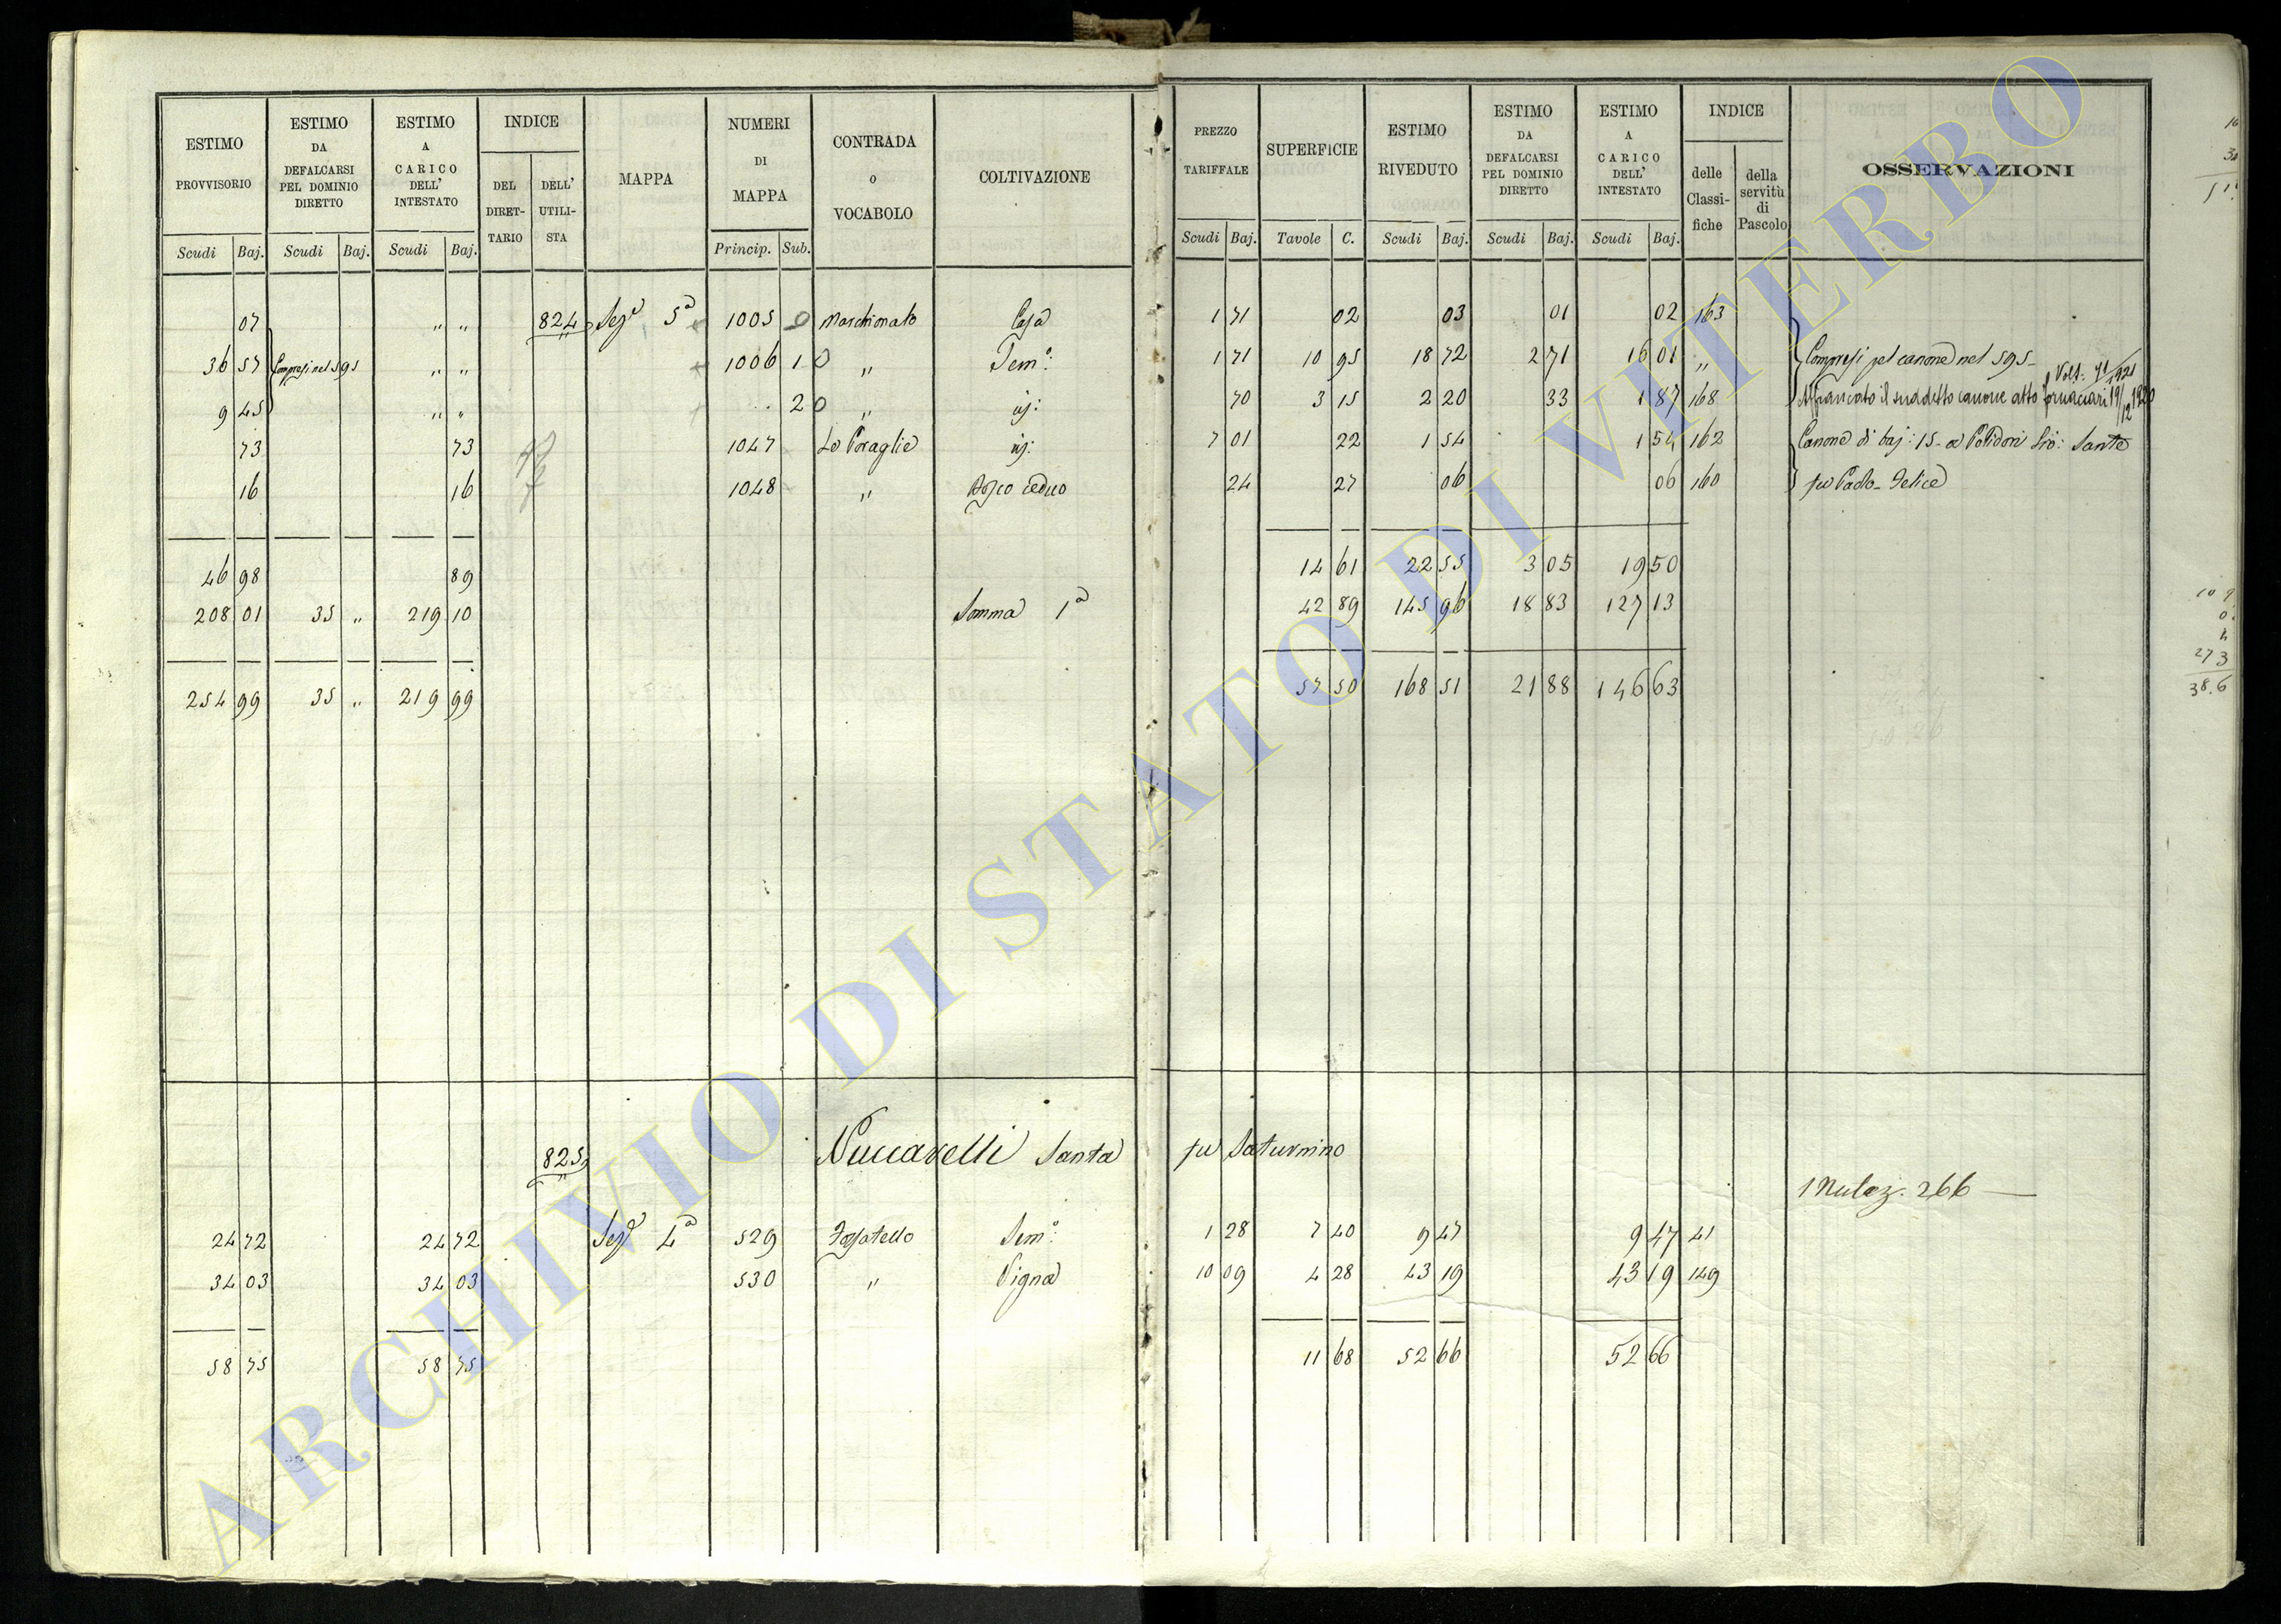 ESTIMO PROVVISORIO | ESTIMO DA DEFALCARSI PEL DOMINIO DIRETTO | ESTIMO A CARICO DELL' INTESTATO | INDICE | MAPPA | NUMERI DI MAPPA | CONTRADA o VOCABOLO | COLTIVAZIONE | PREZZO TARIFFALE | SUPERFICIE | ESTIMO RIVEDUTO | ESTIMO DA DEFALCARSI PEL DOMINIO DIRETTO | ESTIMO A CARICO DELL' INTESTATO | INDICE | OSSERVAZIONI
DEL DIRETTARIO | DELL' UTILISTA | delle Classifiche | della servitù di Pascolo
Scudi Baj. | Scudi Baj. | Scudi Baj. | Princip. Sub. | Scudi Baj. | Tavole C. | Scudi Baj. | Scudi Baj. | Scudi Baj.
07 | " " | 824 | Sezª 5ª | 1005 | Marchionato | Casa | 1 71 | 02 | 03 | 01 | 02 | 163
36 57 | Compresi nel 595 | " " | 1006 1 | " | Semº: | 1 71 | 10 95 | 18 72 | 2 71 | 16 01 | " | Compresi pel canone nel 595
9 45 | " " | 2 | " | id: | 70 | 3 15 | 2 20 | 33 | 1 87 | 168 | Affrancato il suddetto canone atto Fornaciari 19/12 1920 Volt. 1921
73 | 73 | 1047 | id: | 7 01 | 22 | 1 54 | 1 54 | 162 | Canone di baj: 15 a Polidori Sante
16 | 16 | 1048 | " | Bosco ceduo | 24 | 27 | 06 | 06 | 160 | fu Paolo Felice
46 98 | 89 | 14 61 | 22 55 | 3 05 | 19 50
208 01 | 35 " | 219 10 | Somma 1ª | 42 89 | 145 96 | 18 83 | 127 13
254 99 | 35 " | 219 99 | 57 50 | 168 51 | 21 88 | 146 63
273
38.6
825 | Nuccarelli Santa fu Saturnino
266
24 72 | 24 72 | Sezª 4ª | 529 | Fossatello | Semº: | 1 28 | 7 40 | 9 47 | 9 47 | 41
34 03 | 34 03 | 530 | " | Vigna | 10 09 | 4 28 | 43 19 | 43 19 | 149
58 75 | 58 75 | 11 68 | 52 66 | 52 66
ARCHIVIO DI STATO DI VITERBO